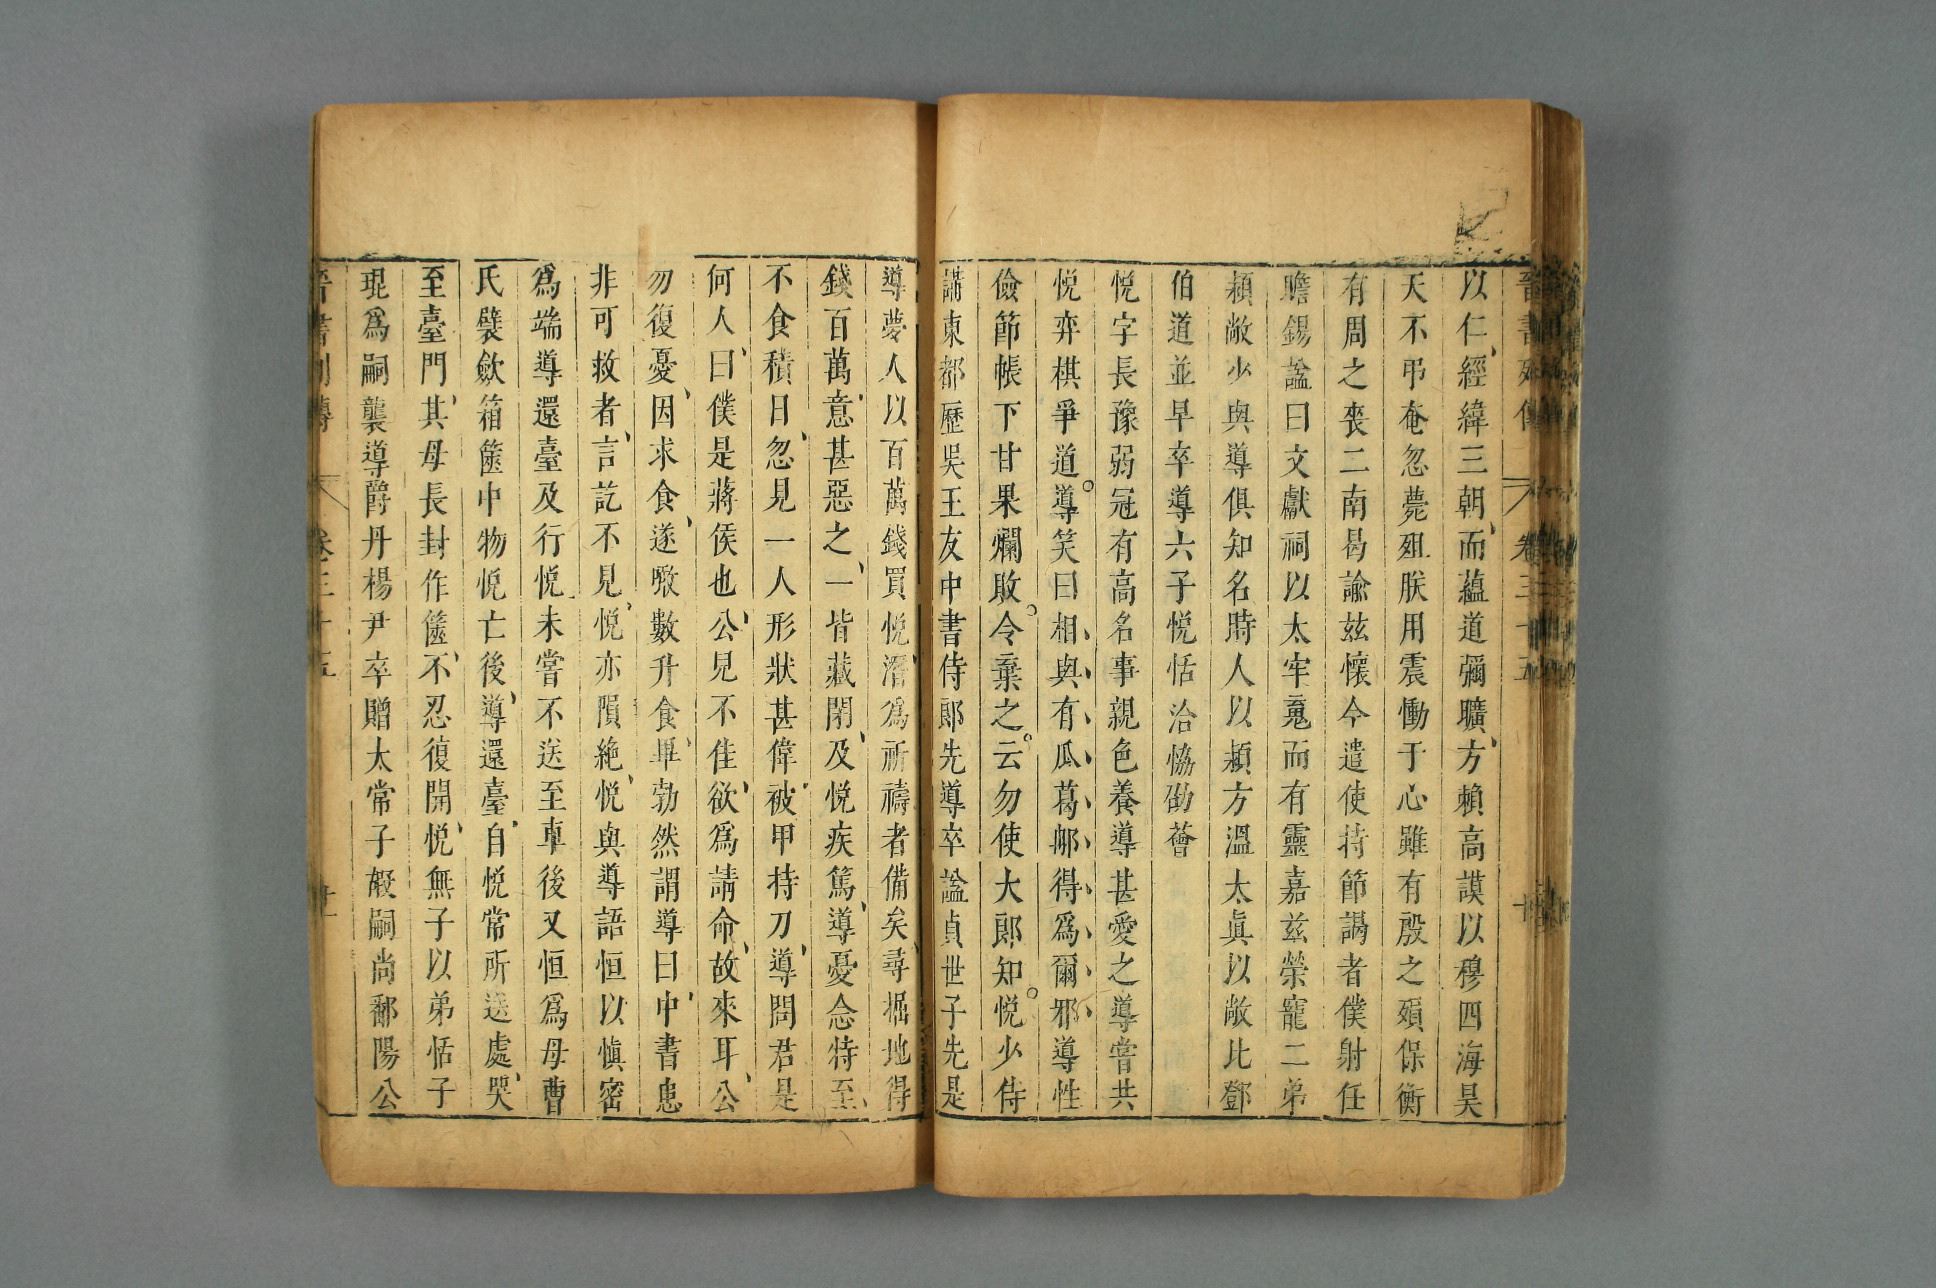 晉書列傳 卷三十五
以仁經緯三朝而蘊道彌曠方賴高謨以穆四海昊
天不弔奄忽薨殂朕用震慟于心雖有殷之殞保衡
有周之喪二南曷諭兹懷今遣使持節謁者僕射任
瞻錫謚曰文獻祠以太牢䰟而有靈嘉兹榮寵二弟
穎敞少與導俱知名時人以穎方溫太眞以敞比鄧
伯道並早卒導六子悅恬洽協劭薈
悅字長豫弱冠有高名事親色養導甚愛之導嘗共
悅弈棋爭道導笑曰相與有瓜葛郍得爲爾邪導性
儉節帳下甘果爛敗令棄之云勿使大郎知悅少侍
講東都歷吳王友中書侍郎先導卒謚貞世子先是
導夢人以百萬錢買悅潛爲祈禱者備矣尋掘地得
錢百萬意甚惡之一皆藏閉及悅疾篤導憂念特至
不食積日忽見一人形狀甚偉被甲持刀導問君是
何人曰僕是蔣侯也公兒不佳欲爲請命故來耳公
勿復憂因求食遂噉數升食畢勃然謂導曰中書患
非可救者言訖不見悅亦隕絶悅與導語恒以愼密
爲端導還臺及行悅未嘗不送至車後又恒爲母曹
氏襞斂箱篋中物悅亡後導還臺自悅常所送處哭
至臺門其母長封作篋不忍復開悅無子以弟恬子
琨爲嗣襲導爵丹楊尹卒贈太常子嘏嗣尚鄱陽公
晉書列傳 卷三十五 廿一